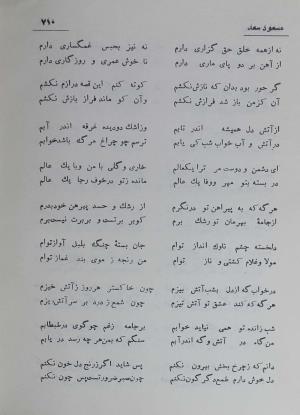 مسعود سعد
۷۱۰
نه ازهمه خلق حق گزاری دارم
نه نیز بحبس غمگساری دارم
از آهن بر دو پای ماری دارم
نا خوش عمری و روزگاری دارم
گر حور بود بدان که نازش نکشم
کوته کنم این قصه درازم نکشم
آن کزمن باز شد فرازش نکشم
وآن کو ماند فراز بازش نکشم
ازآتش دل همیشه اندر تابم
وزاشک دودیده غرقه اندر آبم
درآتش و آب خواب شب کی یابم
ترسم چو چراغ مرگ باشدخوابم
ای دشمن و دوست مر ترا یکمالم
خاری وگلی با من وبا یك عالم
در بسته بنو مهر ووفا یك عالم
مانده زتو درخوف رجا یك عالم
هر گه که به پیراهن تو درنگرم
از رشك و حسد پیرهن خودبدرم
ازجامهٔ بهرمان تو رشك برم
کوبر تست و بربرت نیست برم
دلخسته چشم ناوك انداز توام
جان بستهٔ چنگه بلبل آوازتوام
مولا وغلام کشتی و ناز توام
من رنجه ز موی بند غماز توام
درخواب گه ازدل بشب آتش بیزم
چون خاکستر هرروز زآتش خیزم
هر گه که کند عشق تو آتش تیزم
چون شمع زدرد بر سرآتش ریزم
شب زاندہ تو همی نیاید خوابم
برجامه زغم چوگوی درطبطابم
من گاه در آتش وگه اندرآبم
سنگم که بمن هر چه رسد در یابم
دانم که زچرخ بخش بیرون نکنم
پس شاید اگرزرنج دل خون نکنم
دل خوش دارم طمع دگر گون نکنم
چون صبر ضرورتست پس چون نکنم